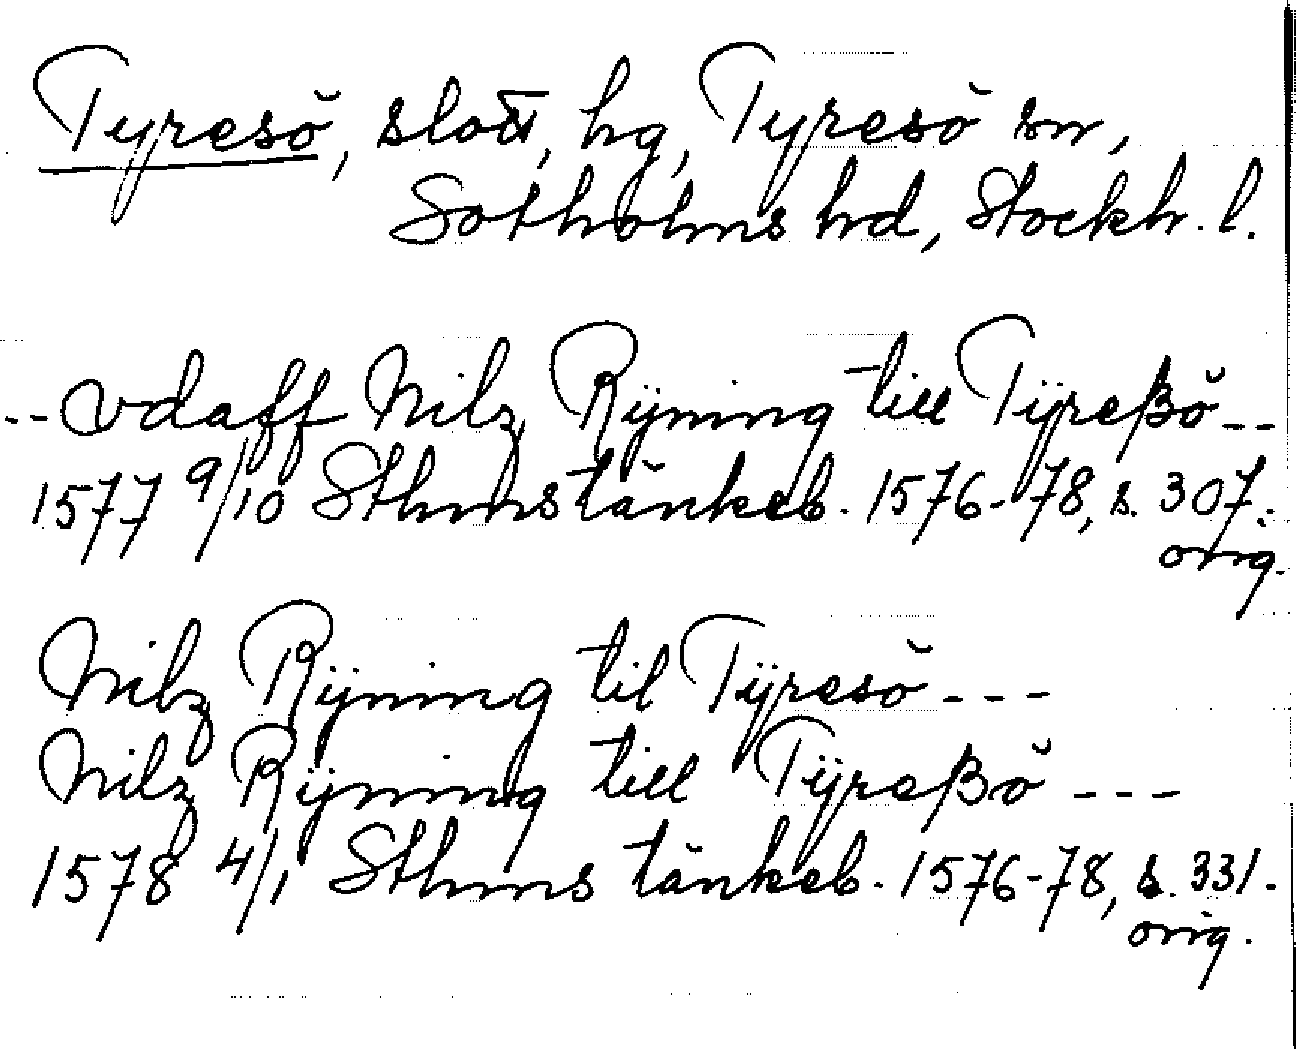 Tyresö, slott, hg, Tyresö sn,
Sotholms hd, Stockh. l.
-- vdaff Nilz Rÿning till Tÿreßö --
1577 9/10 Sthms tänkeb. 1576-78, s. 307.
orig.
Nilz Rÿning til Tÿresö ---
Nilz Rÿning till Tÿreßö ---
1578 4/1 Sthms tänkeb. 1576-78, s. 331.
orig.